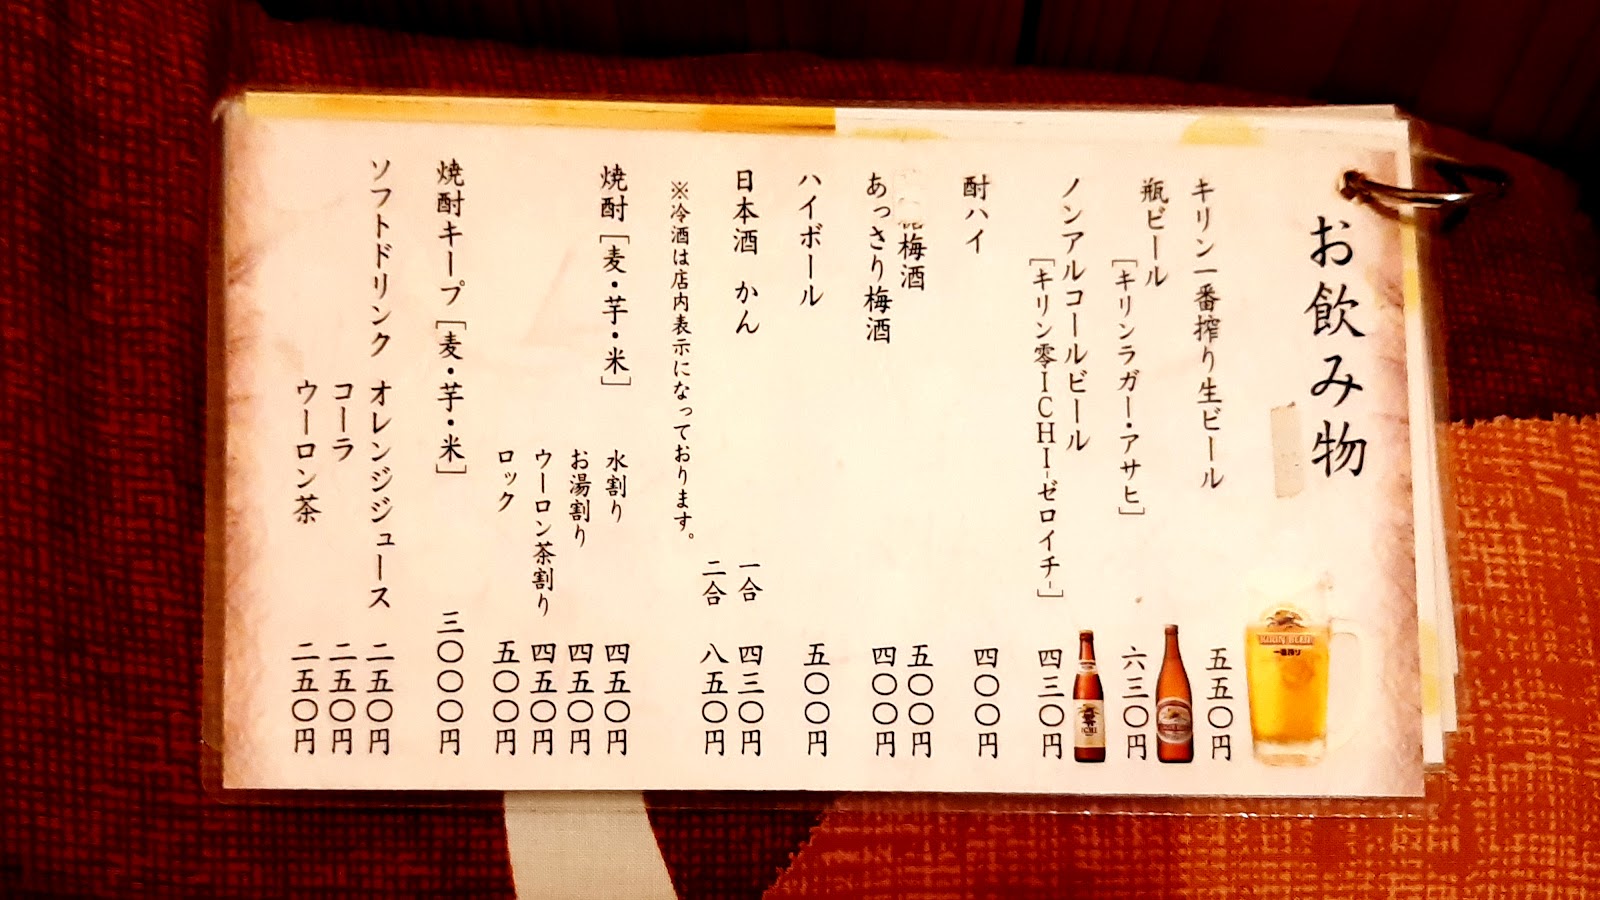 お飲み物
キリン一番搾り生ビール 五五〇円
瓶ビール
[キリンラガー・アサヒ] 六三〇円
ノンアルコールビール
[キリン零ICHI-ゼロイチ-] 四三〇円
酎ハイ 四〇〇円
梅酒 五〇〇円
あっさり梅酒 四〇〇円
ハイボール 五〇〇円
日本酒 かん 一合 四三〇円
二合 八五〇円
※冷酒は店内表示になっております。
焼酎[麦・芋・米] 水割り 四五〇円
お湯割り 四五〇円
ウーロン茶割り 四五〇円
ロック 五〇〇円
焼酎キープ[麦・芋・米] 三〇〇〇円
ソフトドリンク オレンジジュース 二五〇円
コーラ 二五〇円
ウーロン茶 二五〇円
KIRIN BEER
一番搾り
零
ICHI